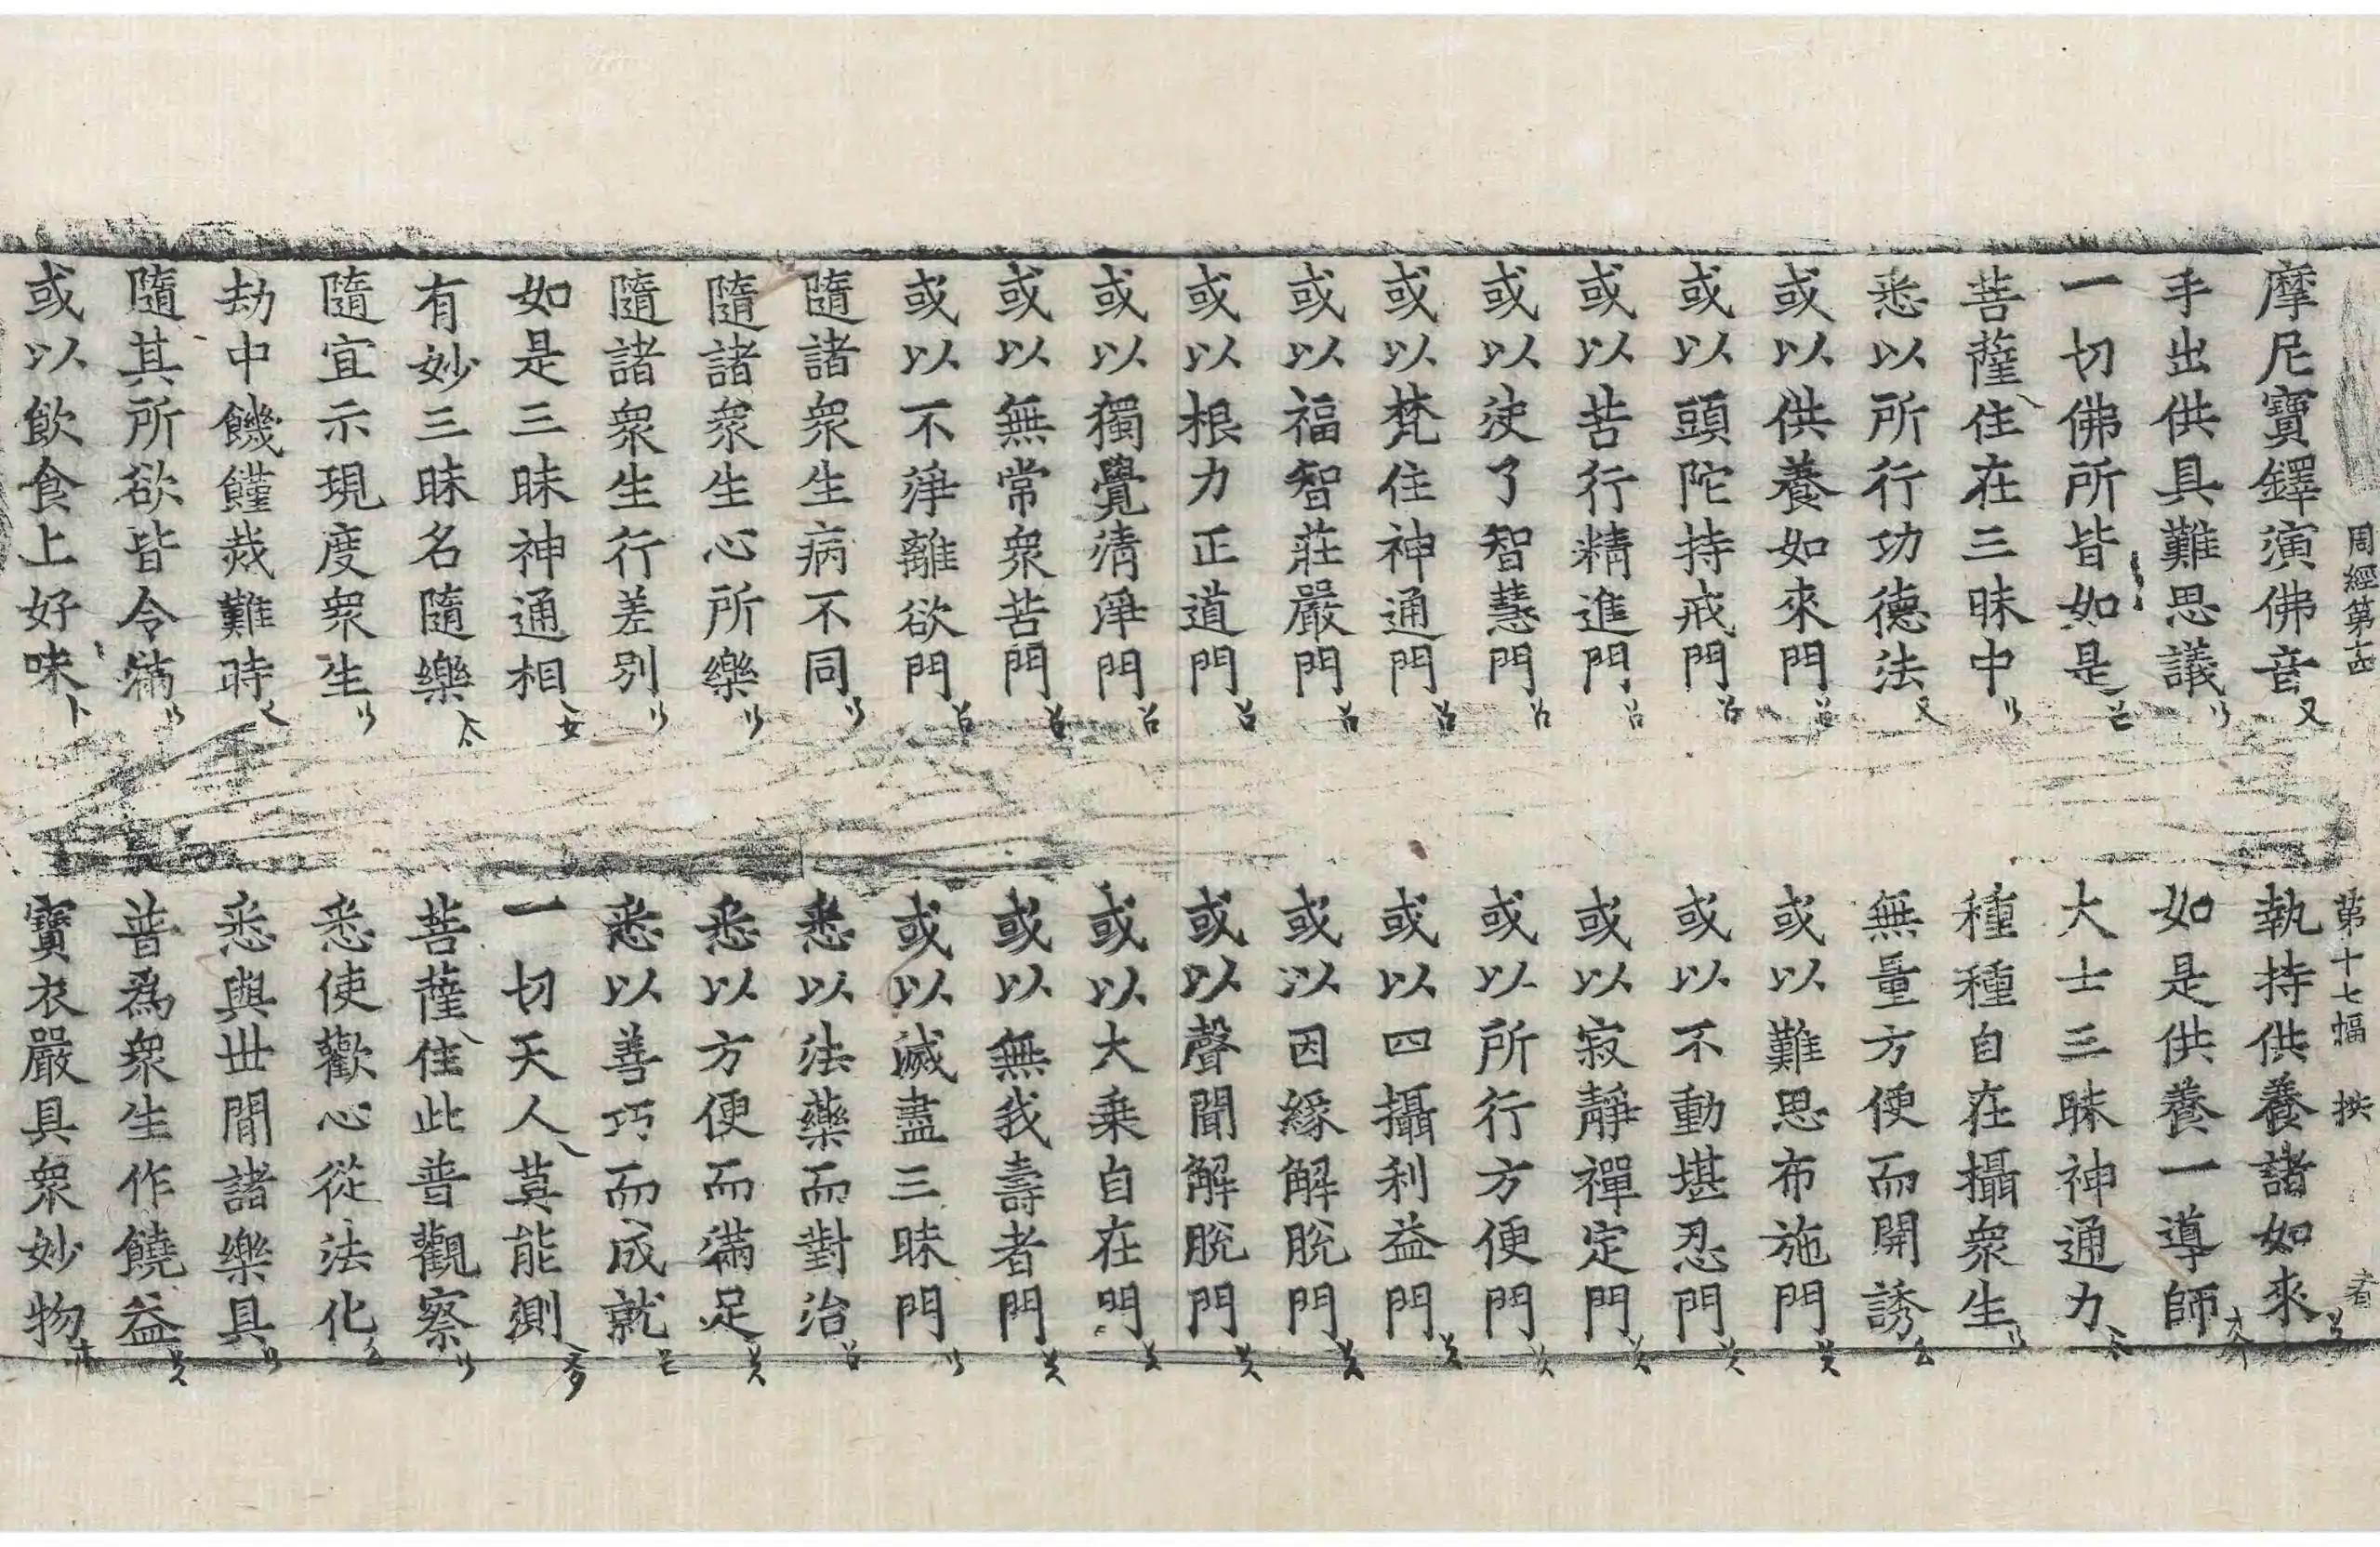 周經第十四 第十七幅 者
摩尼寶鐸演佛音 執持供養諸如來
手出供具難思議 如是供養一導師
一切佛所皆如是 大士三昧神通力
菩薩住在三昧中 種種自在攝衆生
悉以所行功德法 無量方便而開誘
或以供養如來門 或以難思布施門
或以頭陀持戒門 或以不動堪忍門
或以苦行精進門 或以寂靜禪定門
或以決了智慧門 或以所行方便門
或以梵住神通門 或以四攝利益門
或以福智莊嚴門 或以因緣解脫門
或以根力正道門 或以聲聞解脫門
或以獨覺清淨門 或以大乗自在門
或以無常衆苦門 或以無我壽者門
或以不淨離欲門 或以滅盡三昧門
隨諸衆生病不同 悉以法藥而對治
隨諸衆生心所樂 悉以方便而滿足
隨諸衆生行差別 悉以善巧而成就
如是三昧神通相 一切天人莫能測
有妙三昧名隨樂 菩薩住此普觀察
隨宜示現度衆生 悉使歡心從法化
劫中饑饉烖難時 悉與世間諸樂具
隨其所欲皆令滿 普爲衆生作饒益
或以飲食上好味 寶衣嚴具衆妙物